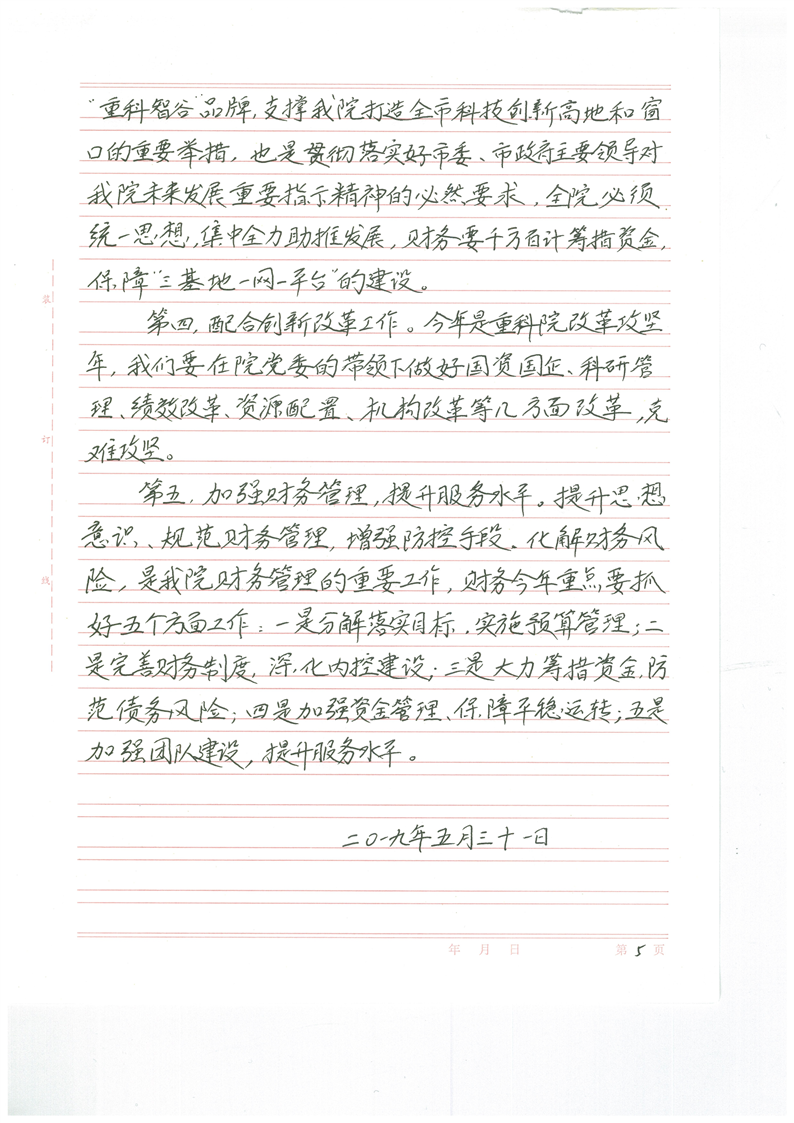 “重科智谷”品牌，支撑我院打造全市科技创新高地和窗
口的重要举措，也是贯彻落实好市委、市政府主要领导对
我院未来发展重要指示精神的必然要求，全院必须
统一思想，集中全力助推发展，财务要千方百计筹措资金，
保障“三基地一网一平台”的建设。
第四，配合创新改革工作。今年是重科院改革攻坚
年，我们要在院党委的带领下做好国资国企、科研管
理、绩效改革、资源配置、机构改革等几方面改革，克
难攻坚。
第五，加强财务管理，提升服务水平。提升思想
意识、规范财务管理，增强防控手段、化解财务风
险，是我院财务管理的重要工作，财务今年重点要抓
好五个方面工作：一是分解落实目标，实施预算管理；二
是完善财务制度，深化内控建设；三是大力筹措资金，防
范债务风险；四是加强资金管理、保障平稳运转；五是
加强团队建设，提升服务水平。
二〇一九年五月三十一日
年 月 日 第 5 页
装
订
线